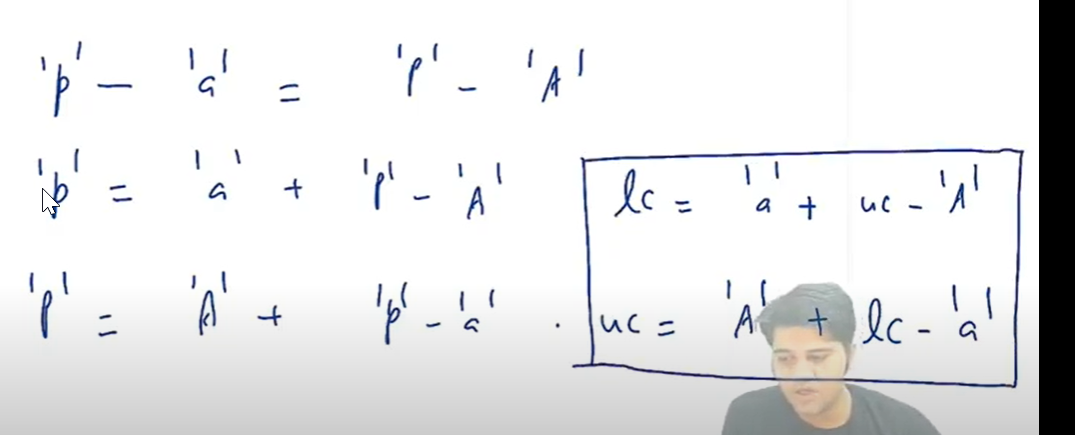 'p' - 'a' = 'P' - 'A'
'p' = 'a' + 'P' - 'A'
'P' = 'A' + 'p' - 'a' .
lc = 'a' + uc - 'A'
uc = 'A' + lc - 'a'